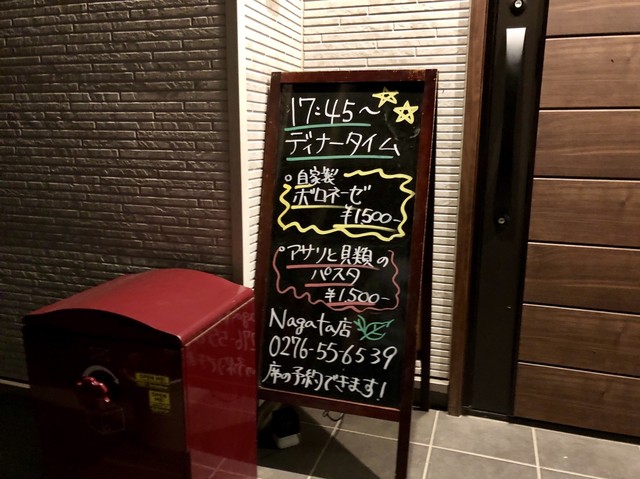 17:45〜
ディナータイム
自家製
ボロネーゼ
¥1500-
アサリと貝類の
パスタ
¥1,500-
Nagata店
0276-55-6539
席の予約できます!